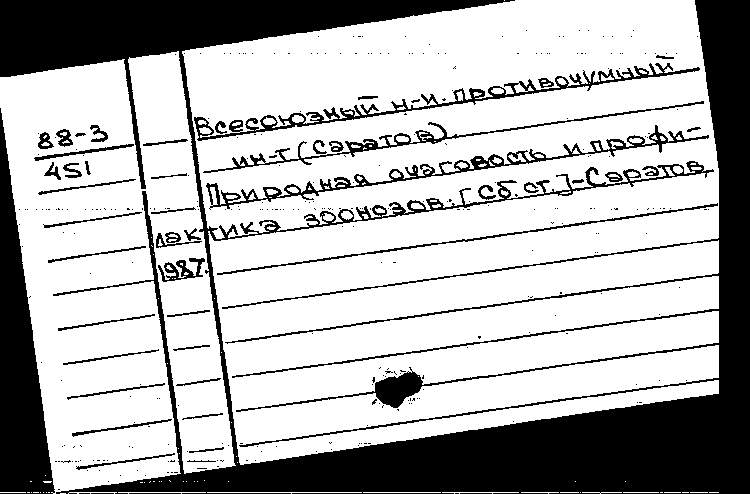 88-3
451
Всесоюзный н-и. противочумный
ин-т (Саратов).
Природная очаговость и профи-
лактика зоонозов: [Сб. ст.]-Саратов,
1987.